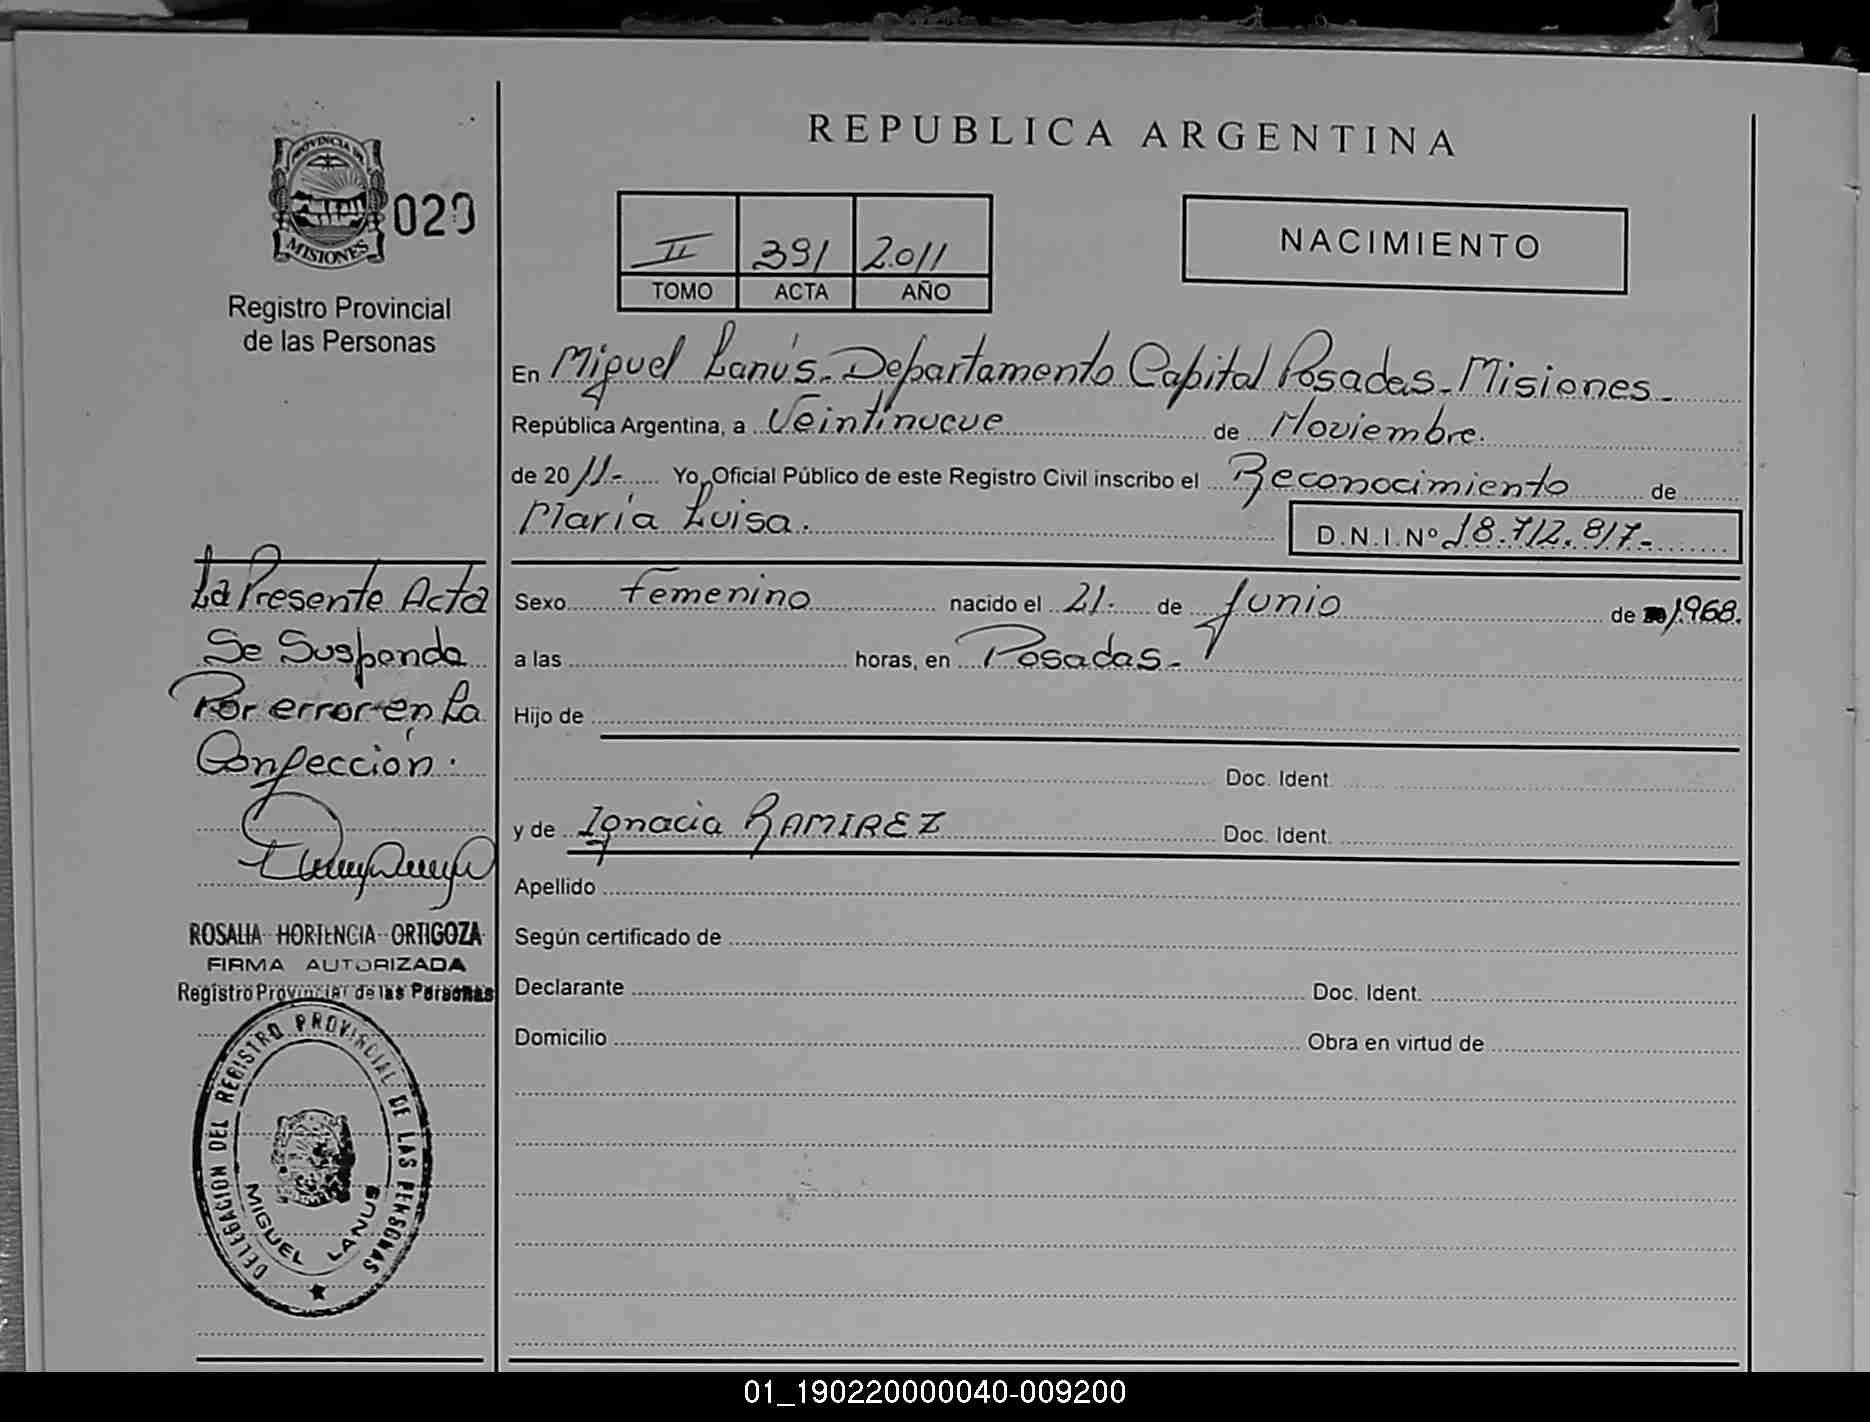 REPUBLICA ARGENTINA
PROVINCIA DE
MISIONES
020
Registro Provincial
de las Personas
II 391 2.011
TOMO ACTA AÑO
NACIMIENTO
En Miguel Lanús. Departamento Capital Posadas. Misiones.
República Argentina, a Veintinueve de Noviembre.
de 20 11.- Yo, Oficial Público de este Registro Civil inscribo el Reconocimiento de
María Luisa. D.N.I.Nº 18.712.817-
Sexo Femenino nacido el 21. de Junio de 1968.
a las horas, en Posadas-
Hijo de
Doc. Ident.
y de Ignacia RAMIREZ Doc. Ident.
Apellido
Según certificado de
Declarante Doc. Ident.
Domicilio Obra en virtud de
La Presente Acta
Se Suspende
Por error en La
Confección.
ROSALIA HORTENCIA ORTIGOZA
FIRMA AUTORIZADA
Registro Provincial de las Personas
DELEGACION DEL REGISTRO PROVINCIAL DE LAS PERSONAS
MIGUEL LANUS
01_190220000040-009200